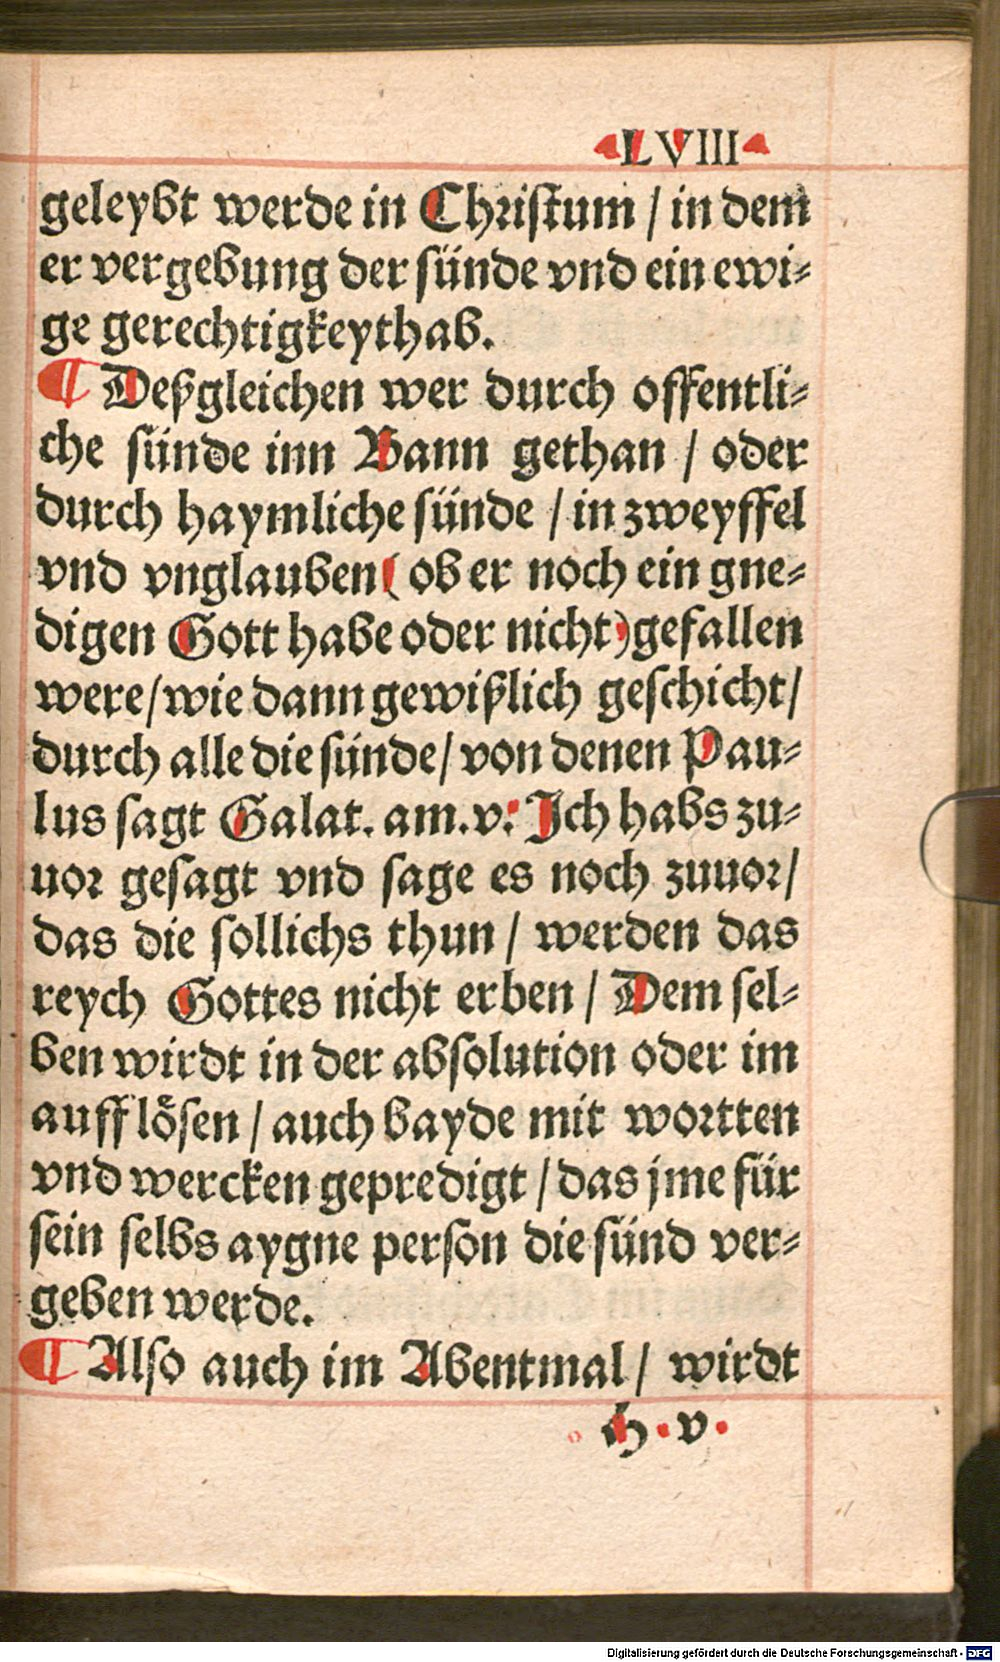 LVIII
geleybt werde in Christum / in dem
er vergebung der sünde vnd ein ewi-
ge gerechtigkeyt hab.
¶ Deßgleichen wer durch offentli-
che sünde inn Bann gethan / oder
durch haymliche sünde / in zweyffel
vnd vnglauben ( ob er noch ein gne-
digen Gott habe oder nicht) gefallen
were / wie dann gewißlich geschicht /
durch alle die sünde / von denen Pau-
lus sagt Galat. am. v: Ich habs zu-
uor gesagt vnd sage es noch zuuor /
das die sollichs thun / werden das
reych Gottes nicht erben / Dem sel-
ben wirdt in der absolution oder im
aufflösen / auch bayde mit wortten
vnd wercken gepredigt / das jme für
sein selbs aygne person die sünd ver-
geben werde.
¶ Also auch im Abentmal / wirdt
h . v .
Digitalisierung gefördert durch die Deutsche Forschungsgemeinschaft - DFG